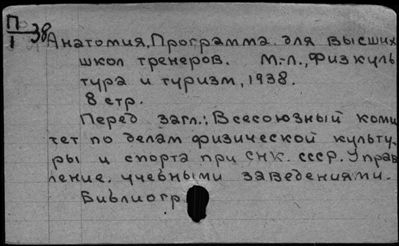 П/1 38
Анатомия. Программа для высших
школ тренеров. М.-Л., Физкуль
тура и туризм, 1938.
8 стр.
Перед загл.: Всесоюзный коми
тет по делам физической культу-
ры и спорта при СНК. СССР. Управ
ление. учебными заведениями.
Библиогр.